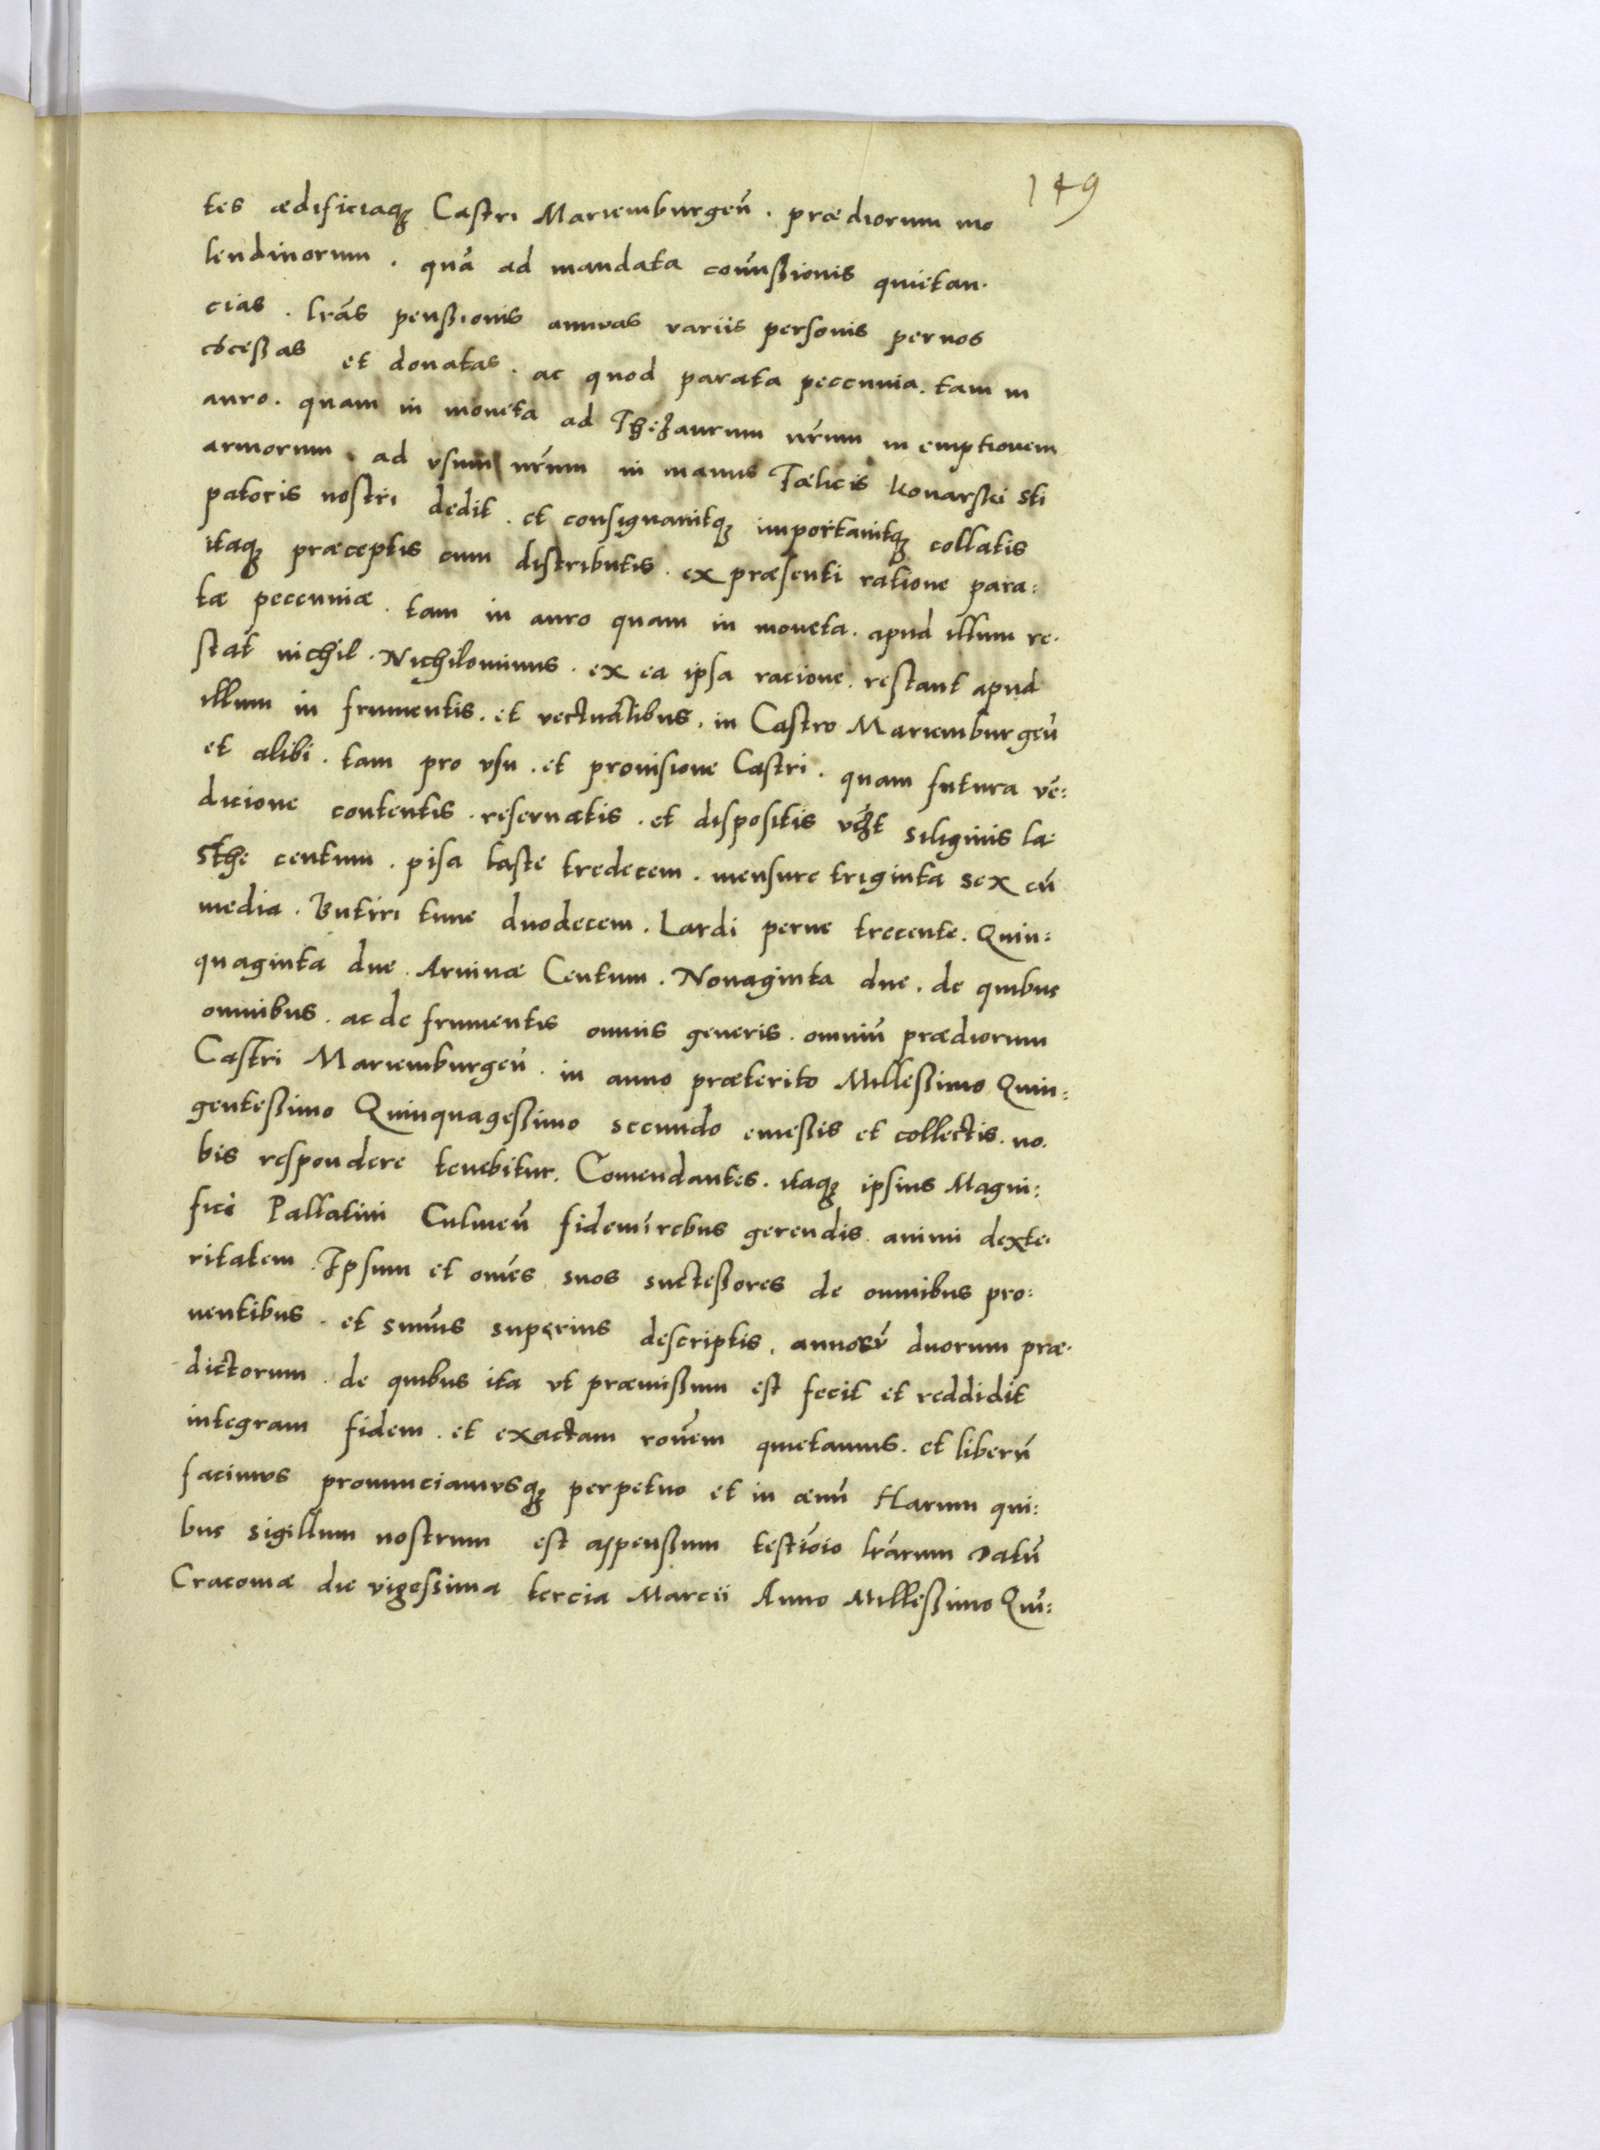 149
tes ædificiaq₃ Castri Mariemburgeñ. prædiorum mo
lendinorum. quā ad mandata com̄ißionis quietan.
cias. l̃ras penßionis annuas variis personis pernos
cōceßas et donatas. ac quod parata peccunia. tam in
auro. quam in moneta ad Thezaurum nr̃um in emptionem
armorum. ad vsum nr̃um in manus Fælicis Konarski sti
patoris nostri dedit. et consignauitq₃ importauitq₃ collatis
itaq₃ præceptis cum distributis. ex præsenti ratione para:
tæ peccuniæ. tam in auro quam in moneta. apud illum re.
stat nichil. Nichilominus. ex ea ipsa racione. restant apud
illum in frumentis. et vectualibus. in Castro Mariemburgeñ
et alibi. tam pro vsu. et prouisione Castri. quam futura vē:
dicione contentis. reseruatis. et dispositis vz̃t siliginis la
sthe centum. pisa laste tredecem. mensure triginta sex cū
media. Butiri tune duodecem. Lardi perne trecente. Quin:
quaginta due. Aruinæ Centum. Nonaginta due. de quibus
omnibus. ac de frumentis omnis generis. omniū prædiorum
Castri Mariemburgeñ. in anno præterito Milleßimo Quin:
genteßimo Quinquageßimo secundo emeßis et collectis. no.
bis respondere tenebitur. Comendantes. itaq₃ ipsius Magni:
fici Pallatini Culmeñ fidem ī rebus gerendis. animi dexte.
ritatem. Ipsum et om̄es suos succeßores de omnibus pro:
uentibus. et sum̄is superius descriptis. annorū duorum præ.
dictorum. de quibus ita vt præmißum est fecit et reddidit
integram fidem. et exactam roñem quietamus. et liberū
facimus pronunciamusq₃ perpetuo et in æuū Harum qui:
bus sigillum nostrum est appenßum testīoio l̃rarum Datū
Cracouiæ die vigessima tercia Marcii Anno Milleßimo Quī: